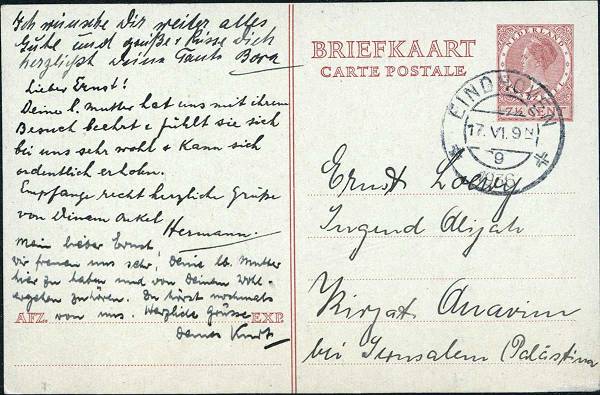 Ich wünsche Dir weiter alles
Gute und grüße & küsse Dich
herzligst Deine Tante Bora
Lieber Ernst!
Deine l. Mutter hat uns mit ihrem
Besuch beehrt & fühlt sie sich
bei uns sehr wohl & kann sich
ordentlich erholen.
Empfange recht herzliche Grüße
von Deinem Onkel
Hermann.
Mein lieber Ernst!
Wir freuen uns sehr, Deine lb. Mutter
hier zu haben und von Deinem Wohl-
ergehen zu hören. Du hörst nochmals
von uns. Herzliche Grüsse
Deines Kurt
AFZ.
EXP.
BRIEFKAART
CARTE POSTALE
NEDERLAND
7½ CENT
EINDHOVEN
17.VI.9N
9
1936
Ernst
Jugend Alijah
Kirjat Anavim
bei Jerusalem (Palästina